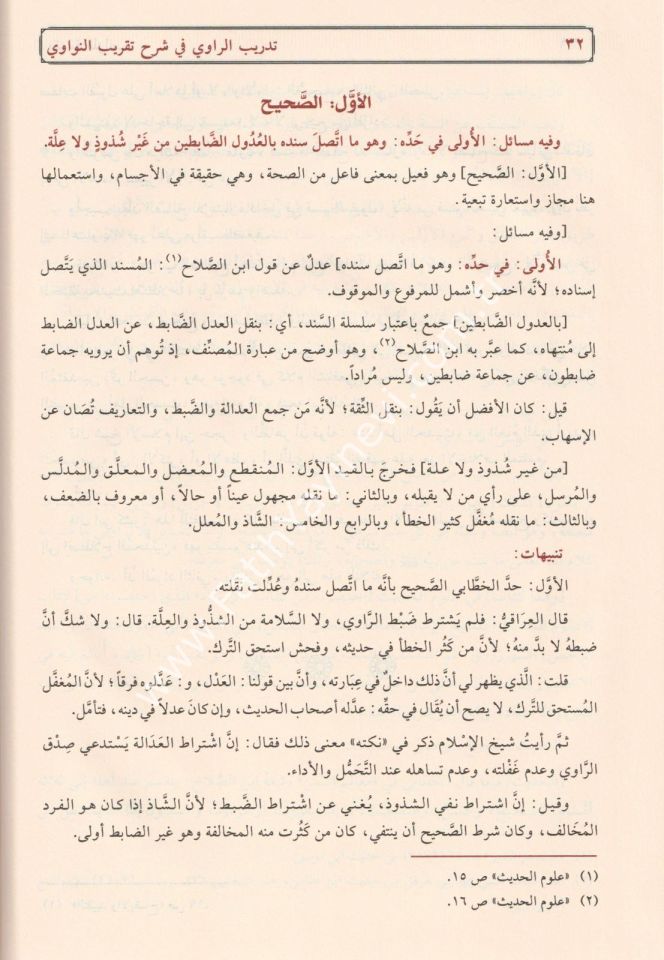 ٣٢ تدريب الراوي في شرح تقريب النواوي
الأوَّل: الصَّحيح
وفيه مسائل: الأُولى في حَدِّه: وهو ما اتَّصلَ سنده بالعُدول الضَّابطين من غَيْر شُذوذٍ ولا عِلَّة.
[الأوَّل: الصَّحيح] وهو فعيل بمعنى فاعل من الصحة، وهي حقيقة في الأجسام، واستعمالها
هنا مجاز واستعارة تبعية.
[وفيه مسائل:
الأُولى: في حدِّه: وهو ما اتَّصل سنده] عدلٌ عن قول ابن الصَّلاح(١): المُسند الذي يَتَّصل
إسناده؛ لأنَّه أخصر وأشمل للمرفوع والموقوف.
[بالعدول الضَّابطين] جمعٌ باعتبار سلسلة السَّند، أي: بنقل العدل الضَّابط، عن العدل الضابط
إلى مُنتهاه، كما عبَّر به ابن الصَّلاح(٢)، وهو أوضح من عبارة المصنِّف، إذ تُوهم أن يرويه جماعة
ضابطون، عن جماعة ضابطين، وليس مُراداً.
قيل: كان الأفضل أن يَقُول: بنقل الثِّقة؛ لأنَّه مَن جمع العدالة والضَّبط، والتعاريف تُصَان عن
الإسهاب.
[من غير شُذوذ ولا علة] فخرجَ بالقيد الأوَّل: المُنقطع والمُعضل والمعلَّق والمُدلَّس
والمُرسل، على رأي من لا يقبله، وبالثاني: ما نقله مجهول عيناً أو حالاً، أو معروف بالضعف،
وبالثالث: ما نقله مُغفَّل كثير الخطأ، وبالرابع والخامس: الشَّاذ والمُعلل.
تنبيهات:
الأوَّل: حدَّ الخطَّابي الصَّحيح بأنَّه ما اتَّصل سندهُ وعُدِّلت نقلته.
قال العِرَاقيُّ: فلم يَشترط ضَبْط الرَّاوي، ولا السَّلامة من الشذُّوذ والعِلَّة. قال: ولا شكَّ أنَّ
ضبطهُ لا بدَّ منهُ؛ لأنَّ من كَثُر الخطأ في حديثه، وفحش استحق التَّرك.
قلت: الَّذي يظهر لي أنَّ ذلك داخلٌ في عِبَارته، وأنَّ بين قولنا: العَدْل، و: عَدَّلوه فرقاً؛ لأنَّ المُغفَّل
المُستحق للتَّرك، لا يصح أن يُقَال في حقِّه: عدَّله أصحاب الحديث، وإن كانَ عدلاً في دينه، فتأمَّل.
ثمَّ رأيتُ شيخ الإسْلام ذكر في «نكته» معنى ذلك فقال: إنَّ اشتراط العَدَالة يَسْتدعي صِدْق
الرَّاوي وعدم غَفْلته، وعدم تساهله عند التَّحمُّل والأداء.
وقيل: إنَّ اشتراط نفي الشذوذ، يُغني عن اشْتراط الضَّبط؛ لأنَّ الشَّاذ إذا كان هو الفرد
المُخَالف، وكان شرط الصَّحيح أن ينتفي، كان من كَثُرت منه المخالفة وهو غير الضابط أولى.
(١) «علوم الحديث» ص ١٥.
(٢) «علوم الحديث» ص ١٦.